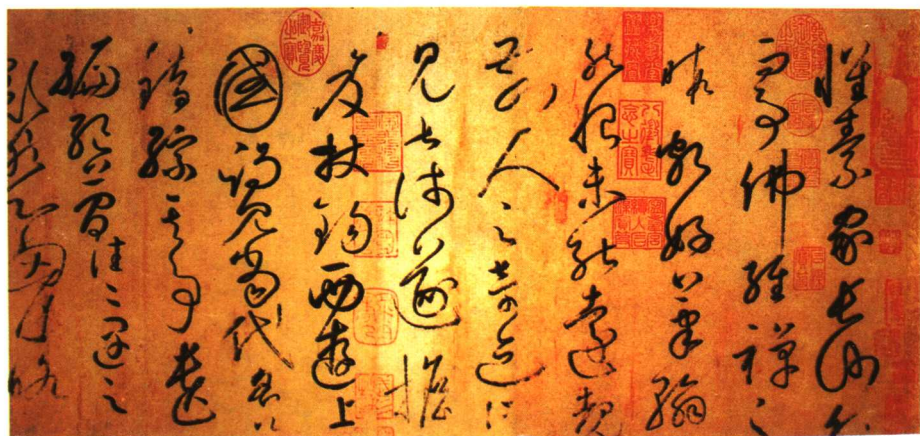 懷素家長沙幼
而事佛經禪之
暇頗好筆翰
然恨未能遠覩
前人之奇迹所
見甚淺遂擔
笈杖錫西遊上
國謁見當代名公
錯綜其事遺
編絕簡往往遇之
豁然心胸略
嘉慶御覽之寶
八徵耄念之寶